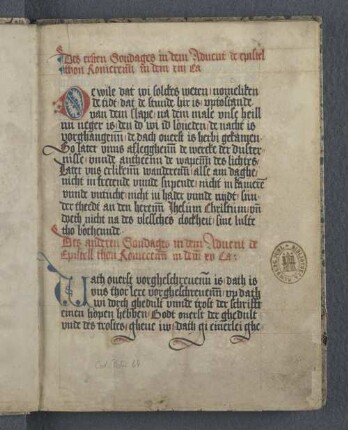 Des ersten Sondages in dem Advent de epistel
thon Romeren in dem xiii ca
De wile dat wi solckes weten nomeliken
de tidt dat de stunde hir is uptostande
van dem slape na dem male unse heill
nu neger is den do wi id loveden de nacht is
vorghangenn de dach overst is herbi gekamen
So later unns afleggenn de wercke der duster
nisse unnde antheenn de wapenn des lichtes
Later uns erlikenn wanderenn alse am daghe
nicht in fretende unde supende nicht in kamere
unde untucht nicht in hader unde nydt sun
der thedt an den herenn Jhesum Christum un
doeth nicht na des vlesches
tho bothende
Des andren Sondages in dem Advent de
Epistell then Romerenn in dem xv ca
Wath overst vorgheschrevenn is dath is
uns thor lere vorgheschrevenn up dath
wi dorch ghedult unde trost der schrifft
einen hopen hebben Godt overst der ghedult
unde des trostes gheve iw dath gi einerlei ghe